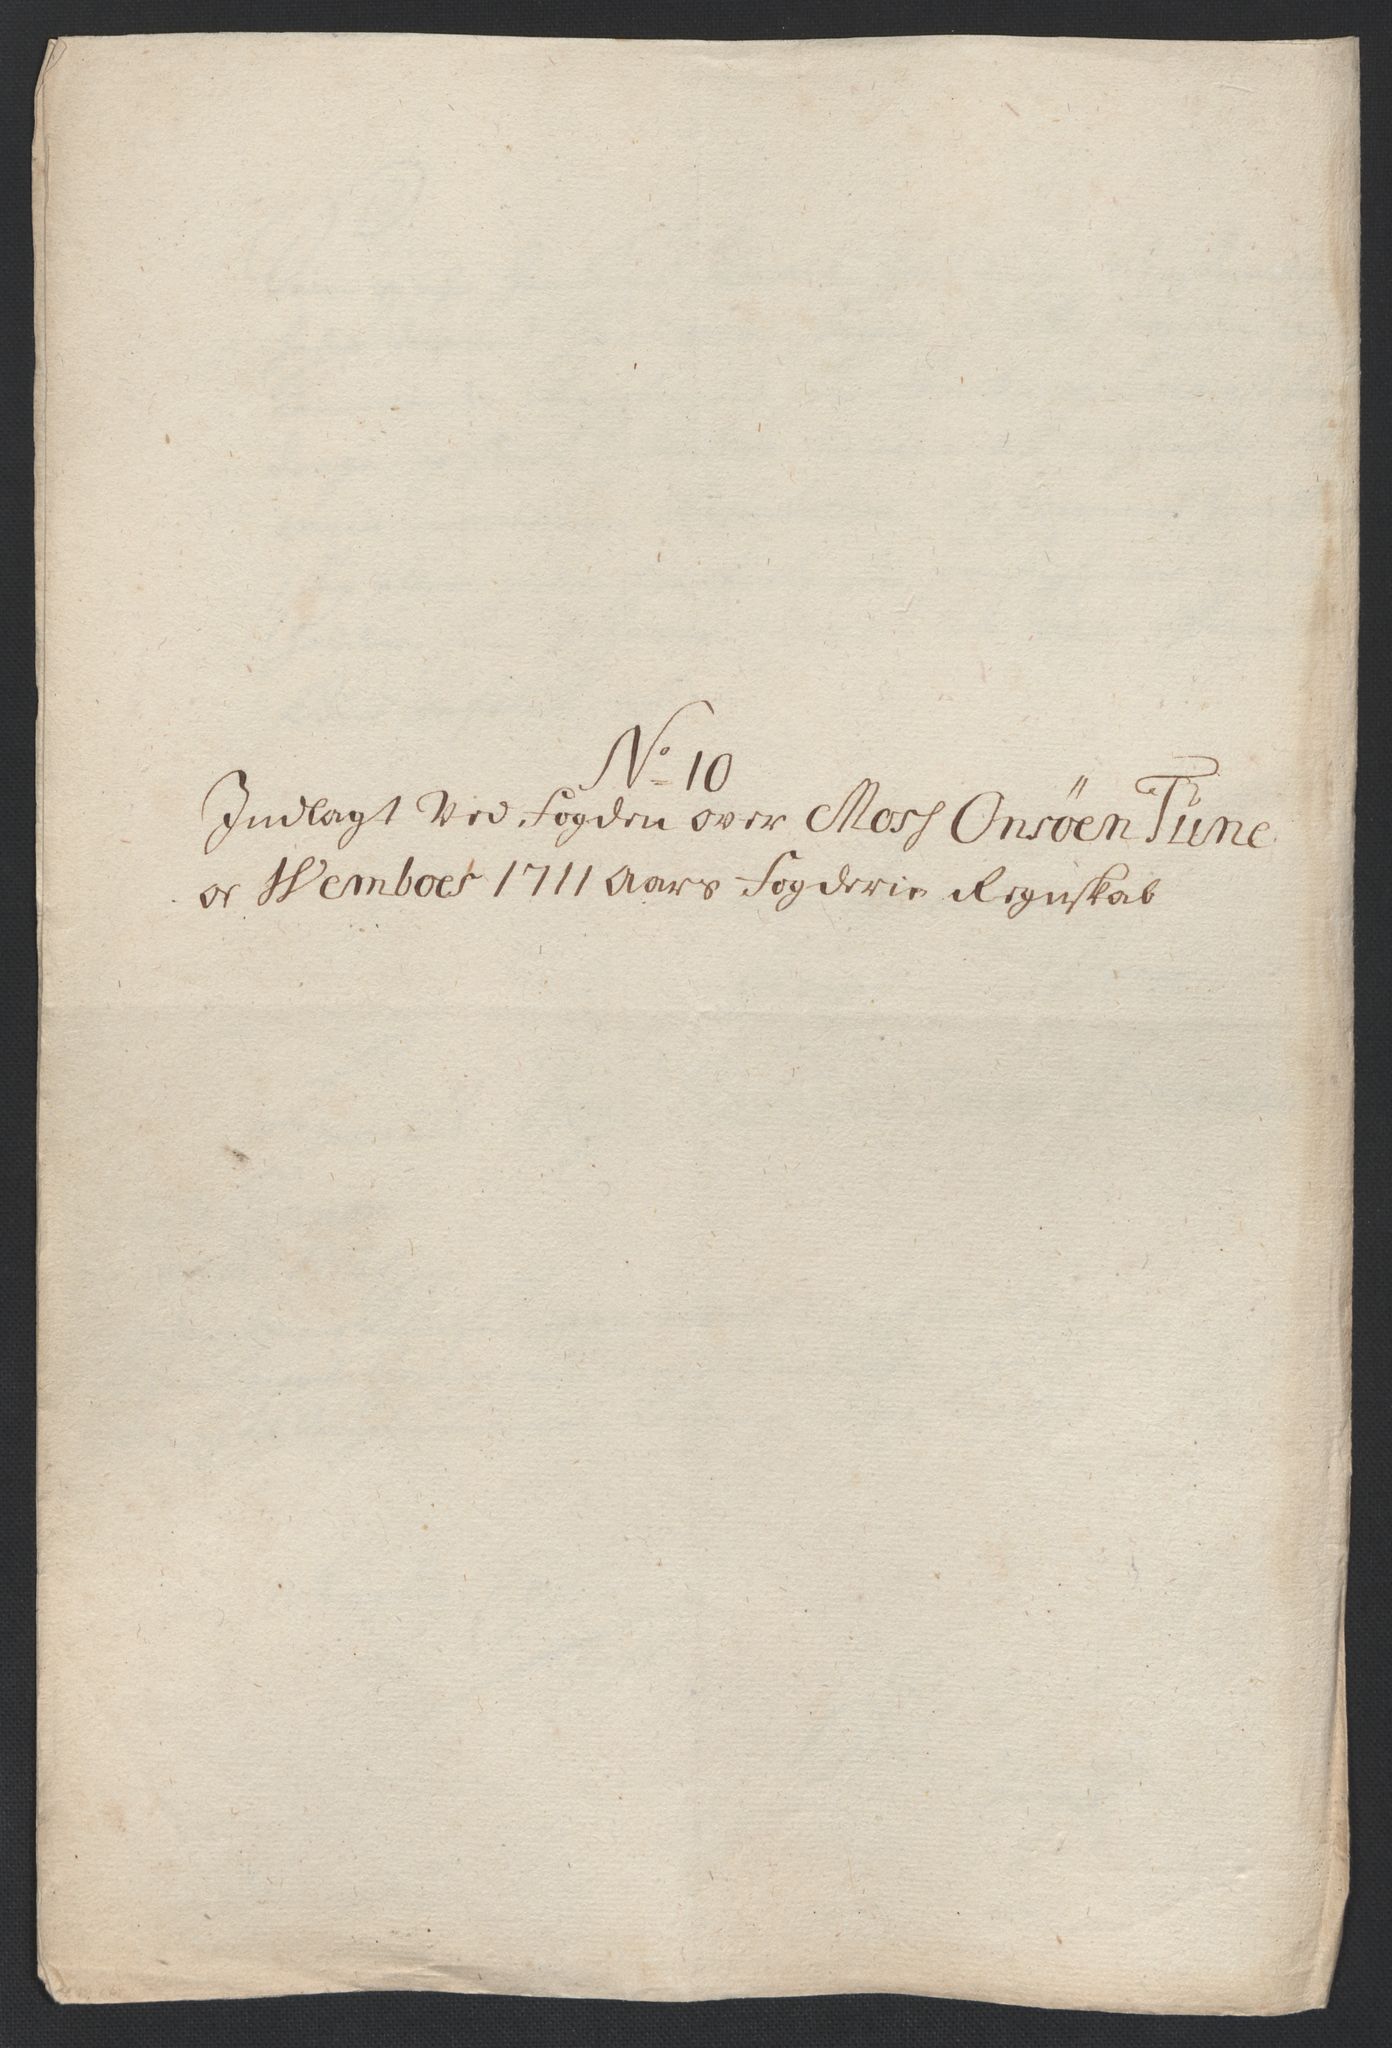 No 10
Indlagt Ved Fogden over Moss Onsöen Tune
oc Wemboes 1711 Aars Fogderie Regnskab